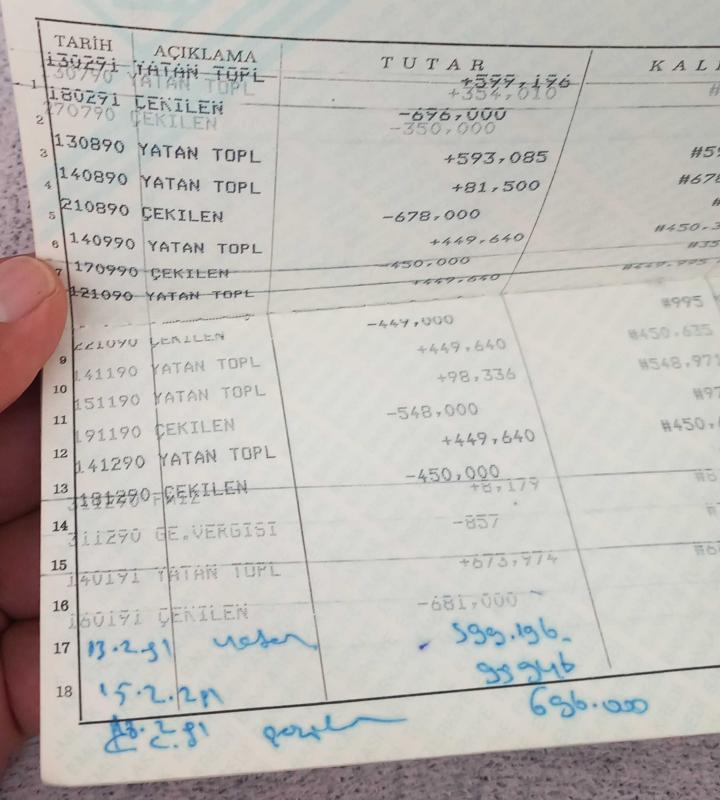 TARİH AÇIKLAMA TUTAR KAL
130291 YATAN TOPL +599,196
1 130790 YATAN TOPL +354,010
180291 ÇEKİLEN -696,000
2 270790 ÇEKİLEN -350,000
3 130890 YATAN TOPL +593,085 #59
4 140890 YATAN TOPL +81,500 #678
5 210890 ÇEKİLEN -678,000 #
6 140990 YATAN TOPL +449,640 #450,3
7 170990 ÇEKİLEN -450,000 #35
121090 YATAN TOPL +449,640 #449,995
221090 ÇEKİLEN -449,000 #995
9 141190 YATAN TOPL +449,640 #450,635
10 151190 YATAN TOPL +98,336 #548,971
11 191190 ÇEKİLEN -548,000 #97
12 141290 YATAN TOPL +449,640 #450,
13 181290 ÇEKİLEN -450,000
311290 FAİZ +8,179 #8
14 311290 GE.VERGİSİ -857 #
15 140191 YATAN TOPL +673,974 #6
16 160191 ÇEKİLEN -681,000
17 13.2.91 yatan 599.196
18 15.2.91 99946
18.2.91 696.000